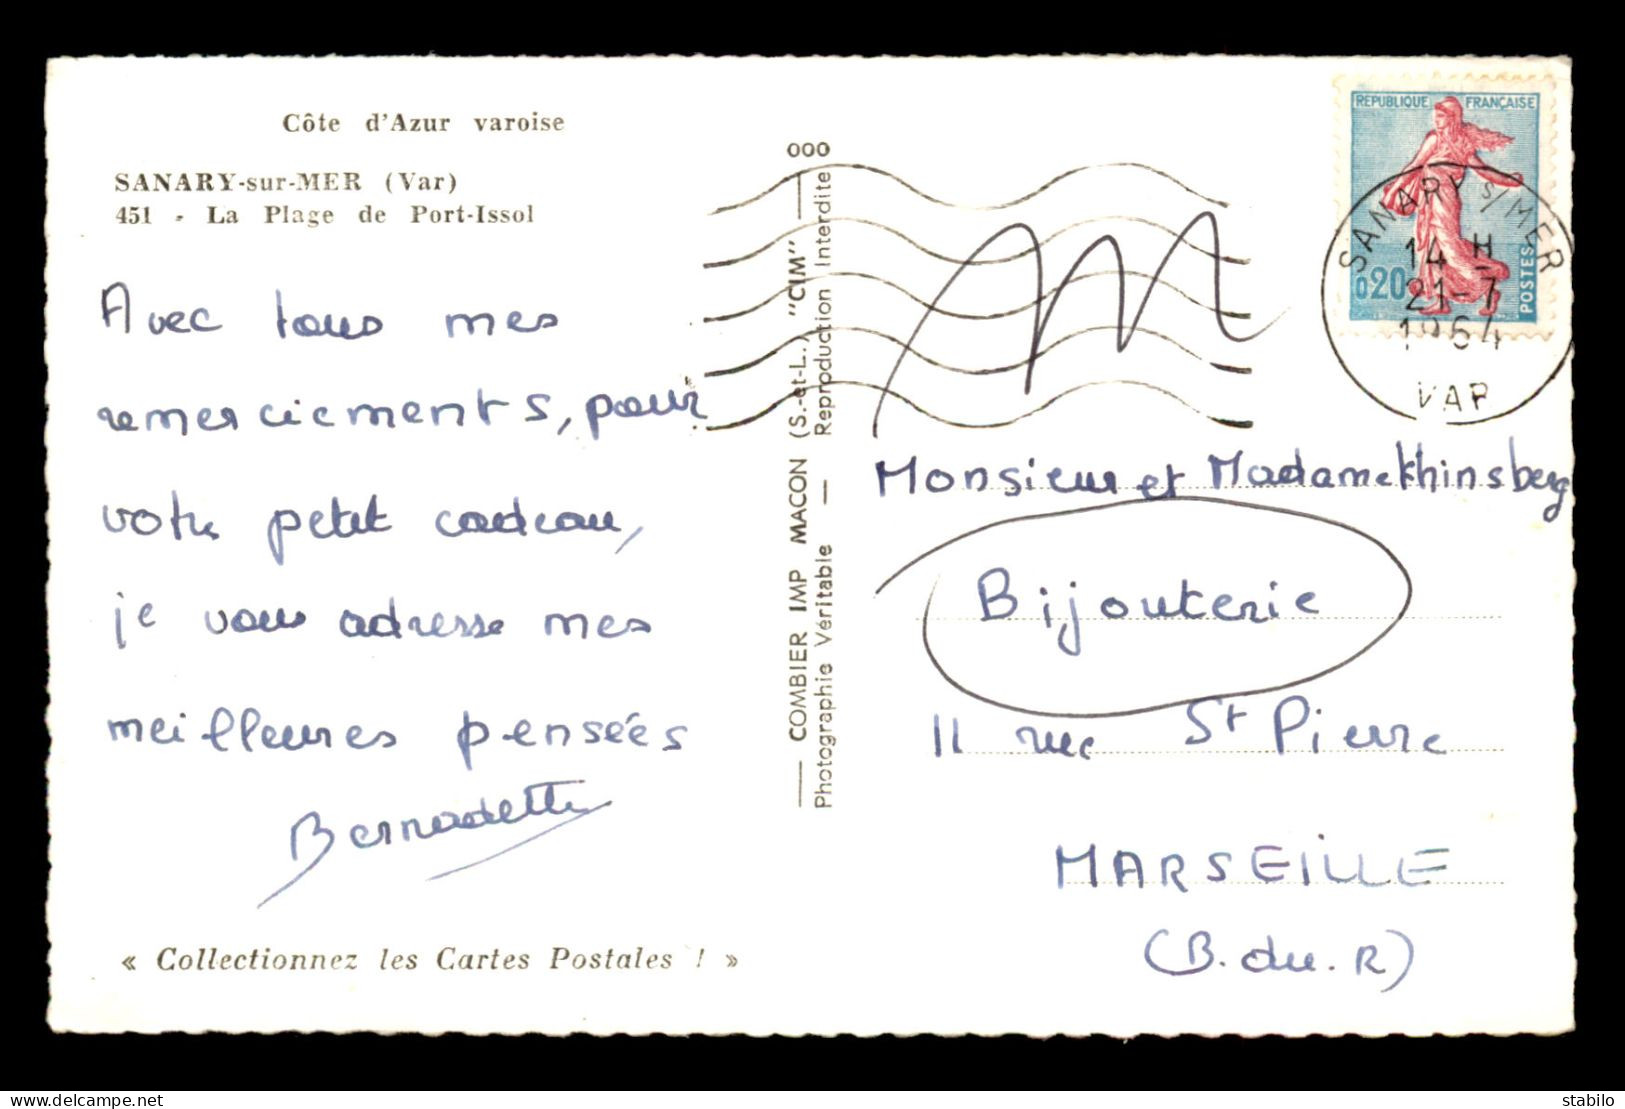 Côte d'Azur varoise
SANARY-sur-MER (Var)
451 - La Plage de Port-Issol
Avec tous mes
remerciements, pour
votre petit cadeau,
je vous adresse mes
meilleures pensées
Bernadette
« Collectionnez les Cartes Postales ! »
000
COMBIER IMP MACON (S.-et-L.) "CIM"
Photographie Véritable — Reproduction Interdite
REPUBLIQUE FRANÇAISE
0,20
POSTES
SANARY S/MER
14 H
21-7
1964
VAR
Monsieur et Madame Khinsberg
Bijouterie
11 rue St Pierre
MARSEILLE
(B. du. R)
stabilo | delcampe.net